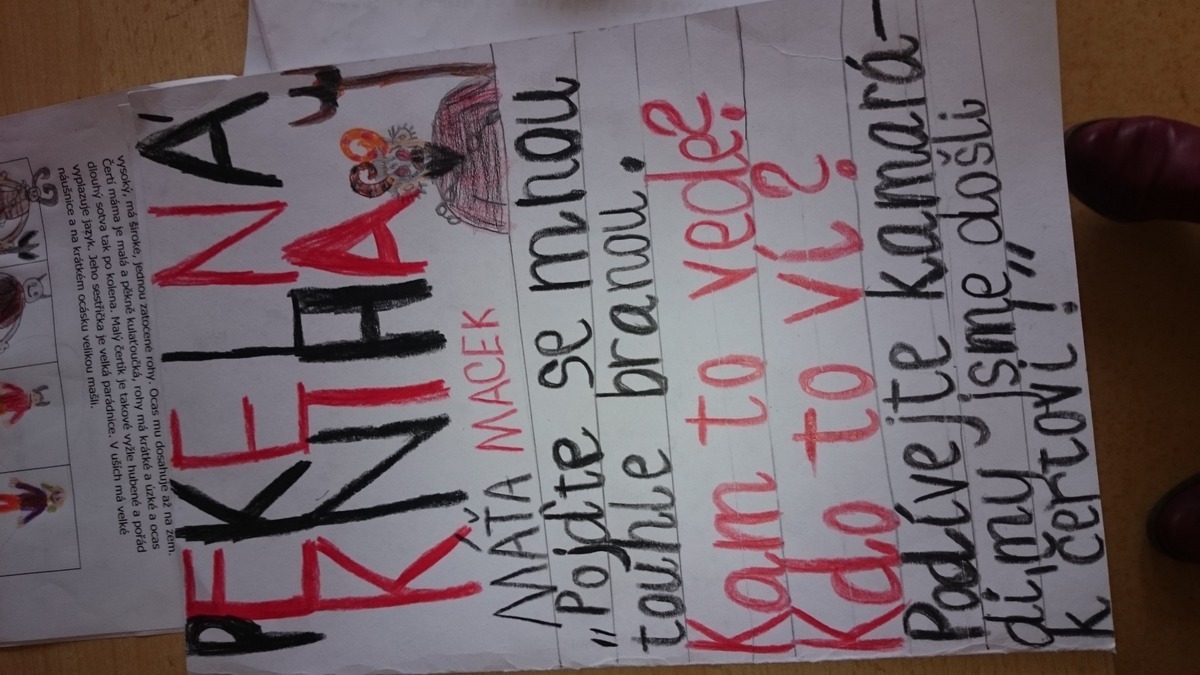 PEKELNÁ
KNIHA
MÁŤA MACEK
„Pojďte se mnou
touhle branou.
Kam to vede?
Kdo to ví?
Podívejte kamará-
di, my jsme došli
k čertovi!"
vysoký, má široké, jednou zatočené rohy. Ocas mu dosahuje až na zem.
Čertí máma je malá a pěkně kulaťoučká, rohy má krátké a úzké a ocas
dlouhý sotva tak po kolena. Malý čertík je takové vyžle hubené a pořád
vyplazuje jazyk. Jeho sestřička je velká parádnice. V uších má velké
náušnice a na krátkém ocásku velikou mašli.